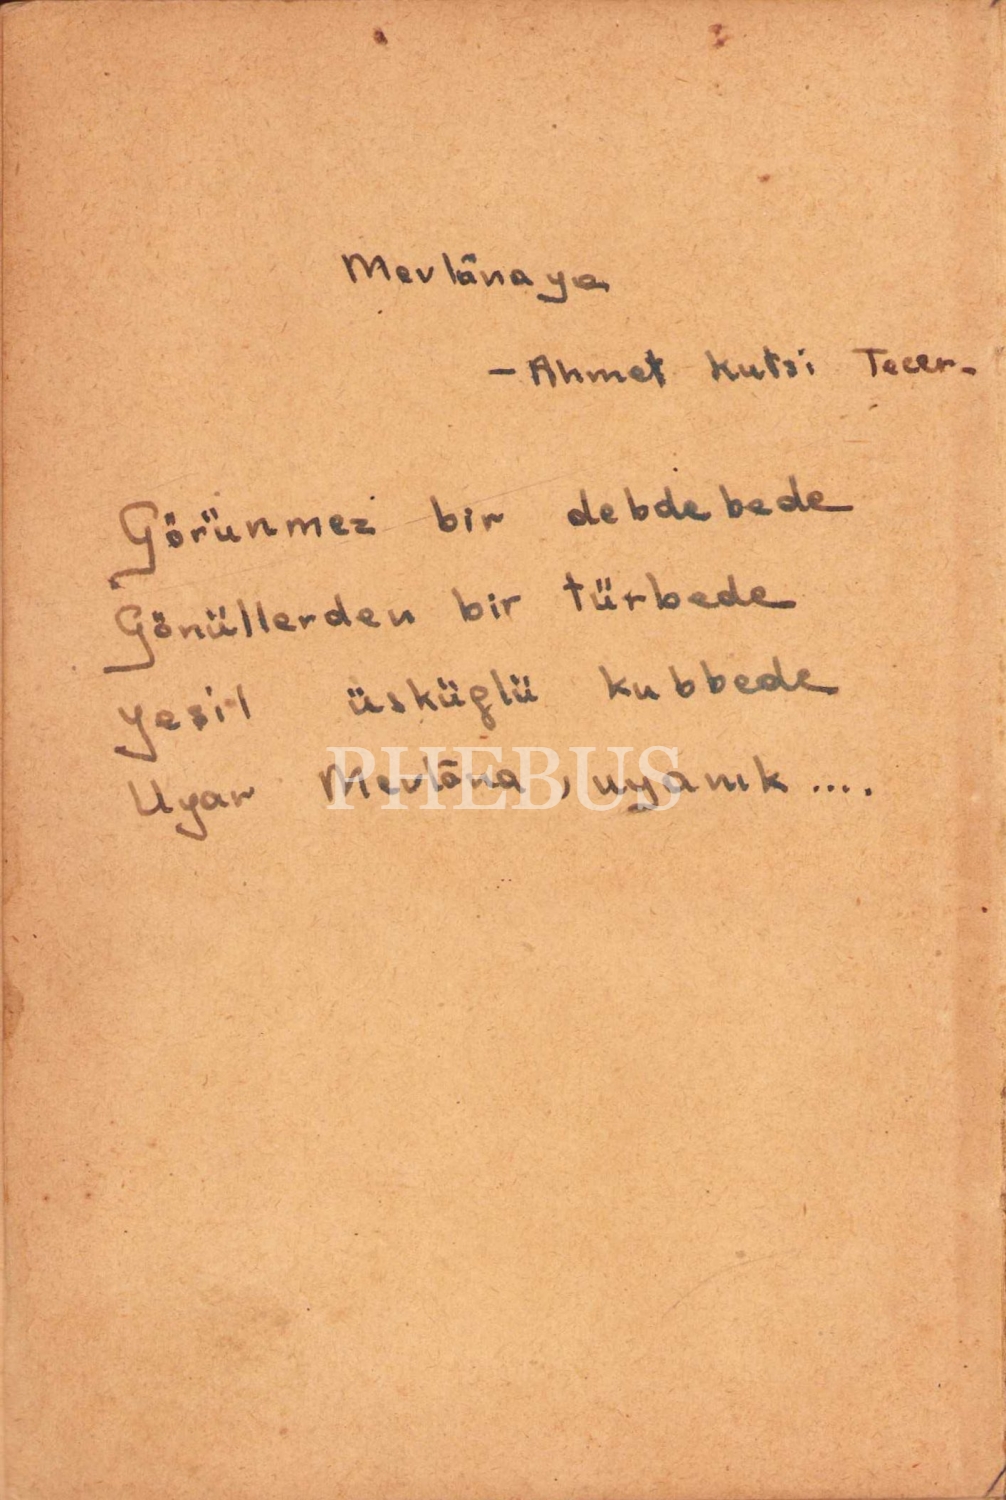 Mevlânaya
- Ahmet Kutsi Tecer -
Görünmez bir debdebede
Gönüllerden bir türbede
Yeşil üsküflü kubbede
Uyar Mevlâna, uyanık ....
PHEBUS